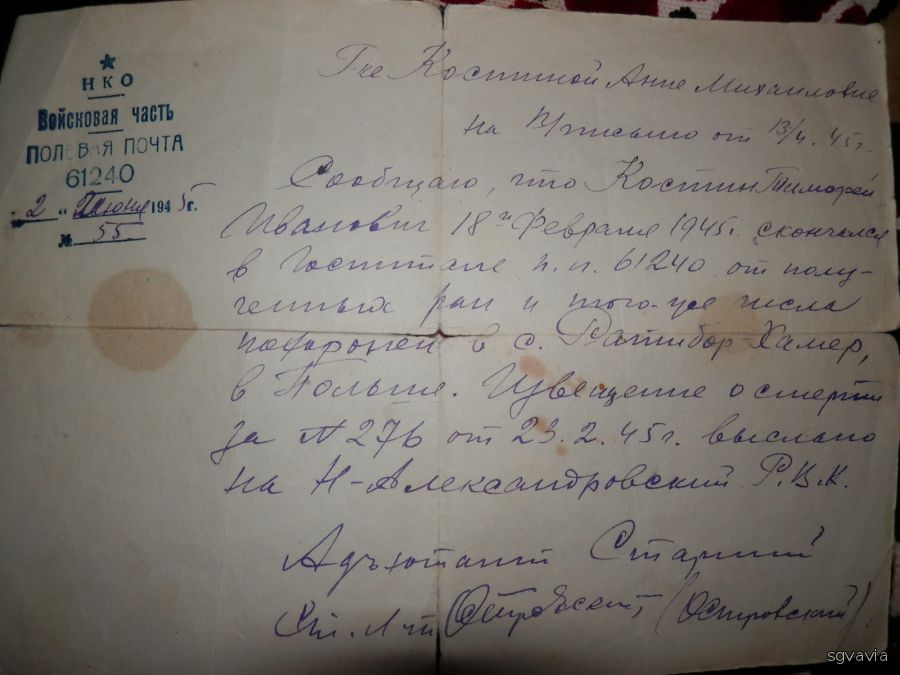 НКО
Войсковая часть
ПОЛЕВАЯ ПОЧТА
61240
"2" июня 1945 г.
№ 55
Гке Костиной Анне Михаиловне
на В/письмо от 13/4. 45г.
Сообщаю, что Костин Тимофей
Иванович 18го Февраля 1945г. скончался
в Госпитале п.п. 61240 от полу-
ченных ран и того-же числа
похоронен в с. Ратибор-Хамер,
в Польше. Извещение о смерти
за N 276 от 23.2.45г. выслано
на Н-Александровский Р.В.К.
Адъютант Старший
Ст. Л-т (Островский)
sgvavia